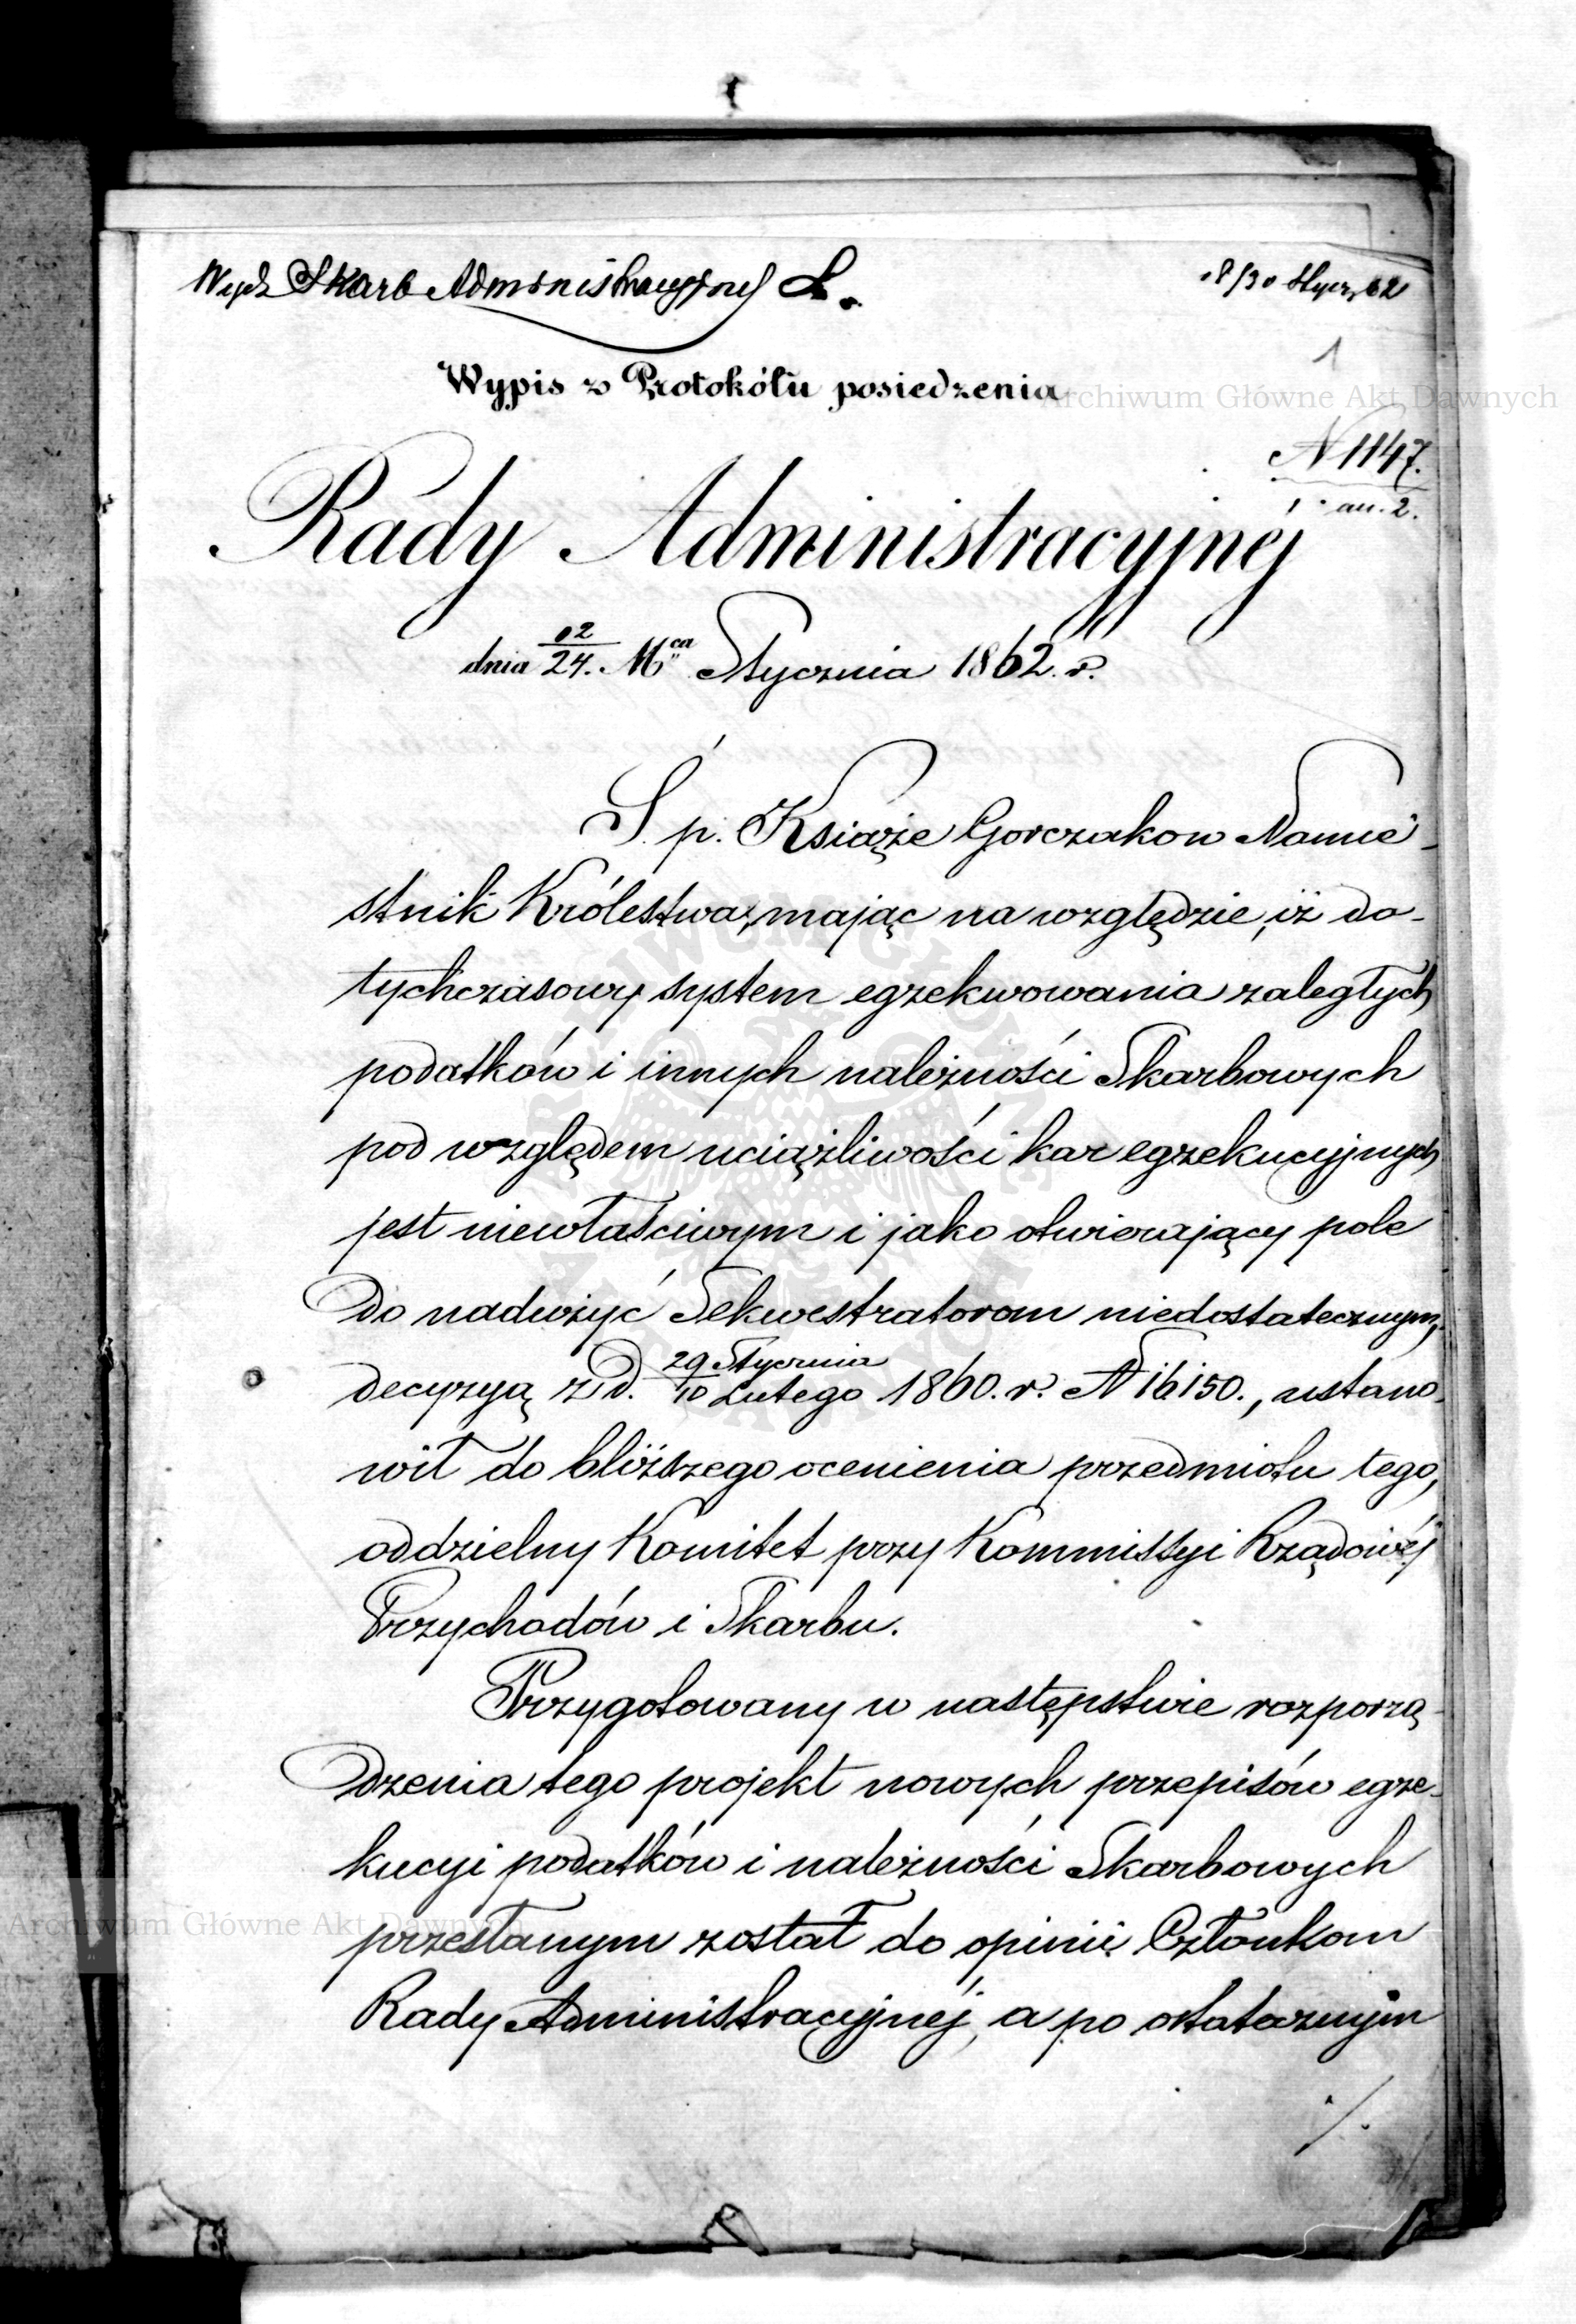 Wydz Skarb Administracyjny S.
18/30 Stycz, 62
1
Wypis z Protokółu posiedzenia
N 1147.
1 · an. 2.
Rady Administracyjnéj
dnia 12/24. Mca Stycznia 1862. r.
Ś. p. Książe Gorczakow Namie-
stnik Królestwa, mając na względzie, iż do-
tychczasowy system egzekwowania zaległych
podatków i innych należności Skarbowych
pod względem uciążliwości kar egzekucyjnych
jest niewłaściwym i jako otwierający pole
do nadużyć Sekwestratorom niedostatecznym,
decyzyą z d. 29 Stycznia/10 Lutego 1860. r. N 16150., ustano-
wił do bliższego ocenienia przedmiotu tego,
oddzielny Komitet przy Kommissyi Rządowéj
Przychodów i Skarbu.
Przygotowany w następstwie rozporzą-
dzenia tego projekt nowych przepisów egze-
kucyi podatków i należności Skarbowych
przesłanym został do opinii Członkom
Rady Administracyjnéj, a po ostatecznym
./.
Archiwum Główne Akt Dawnych
Archiwum Główne Akt Dawnych